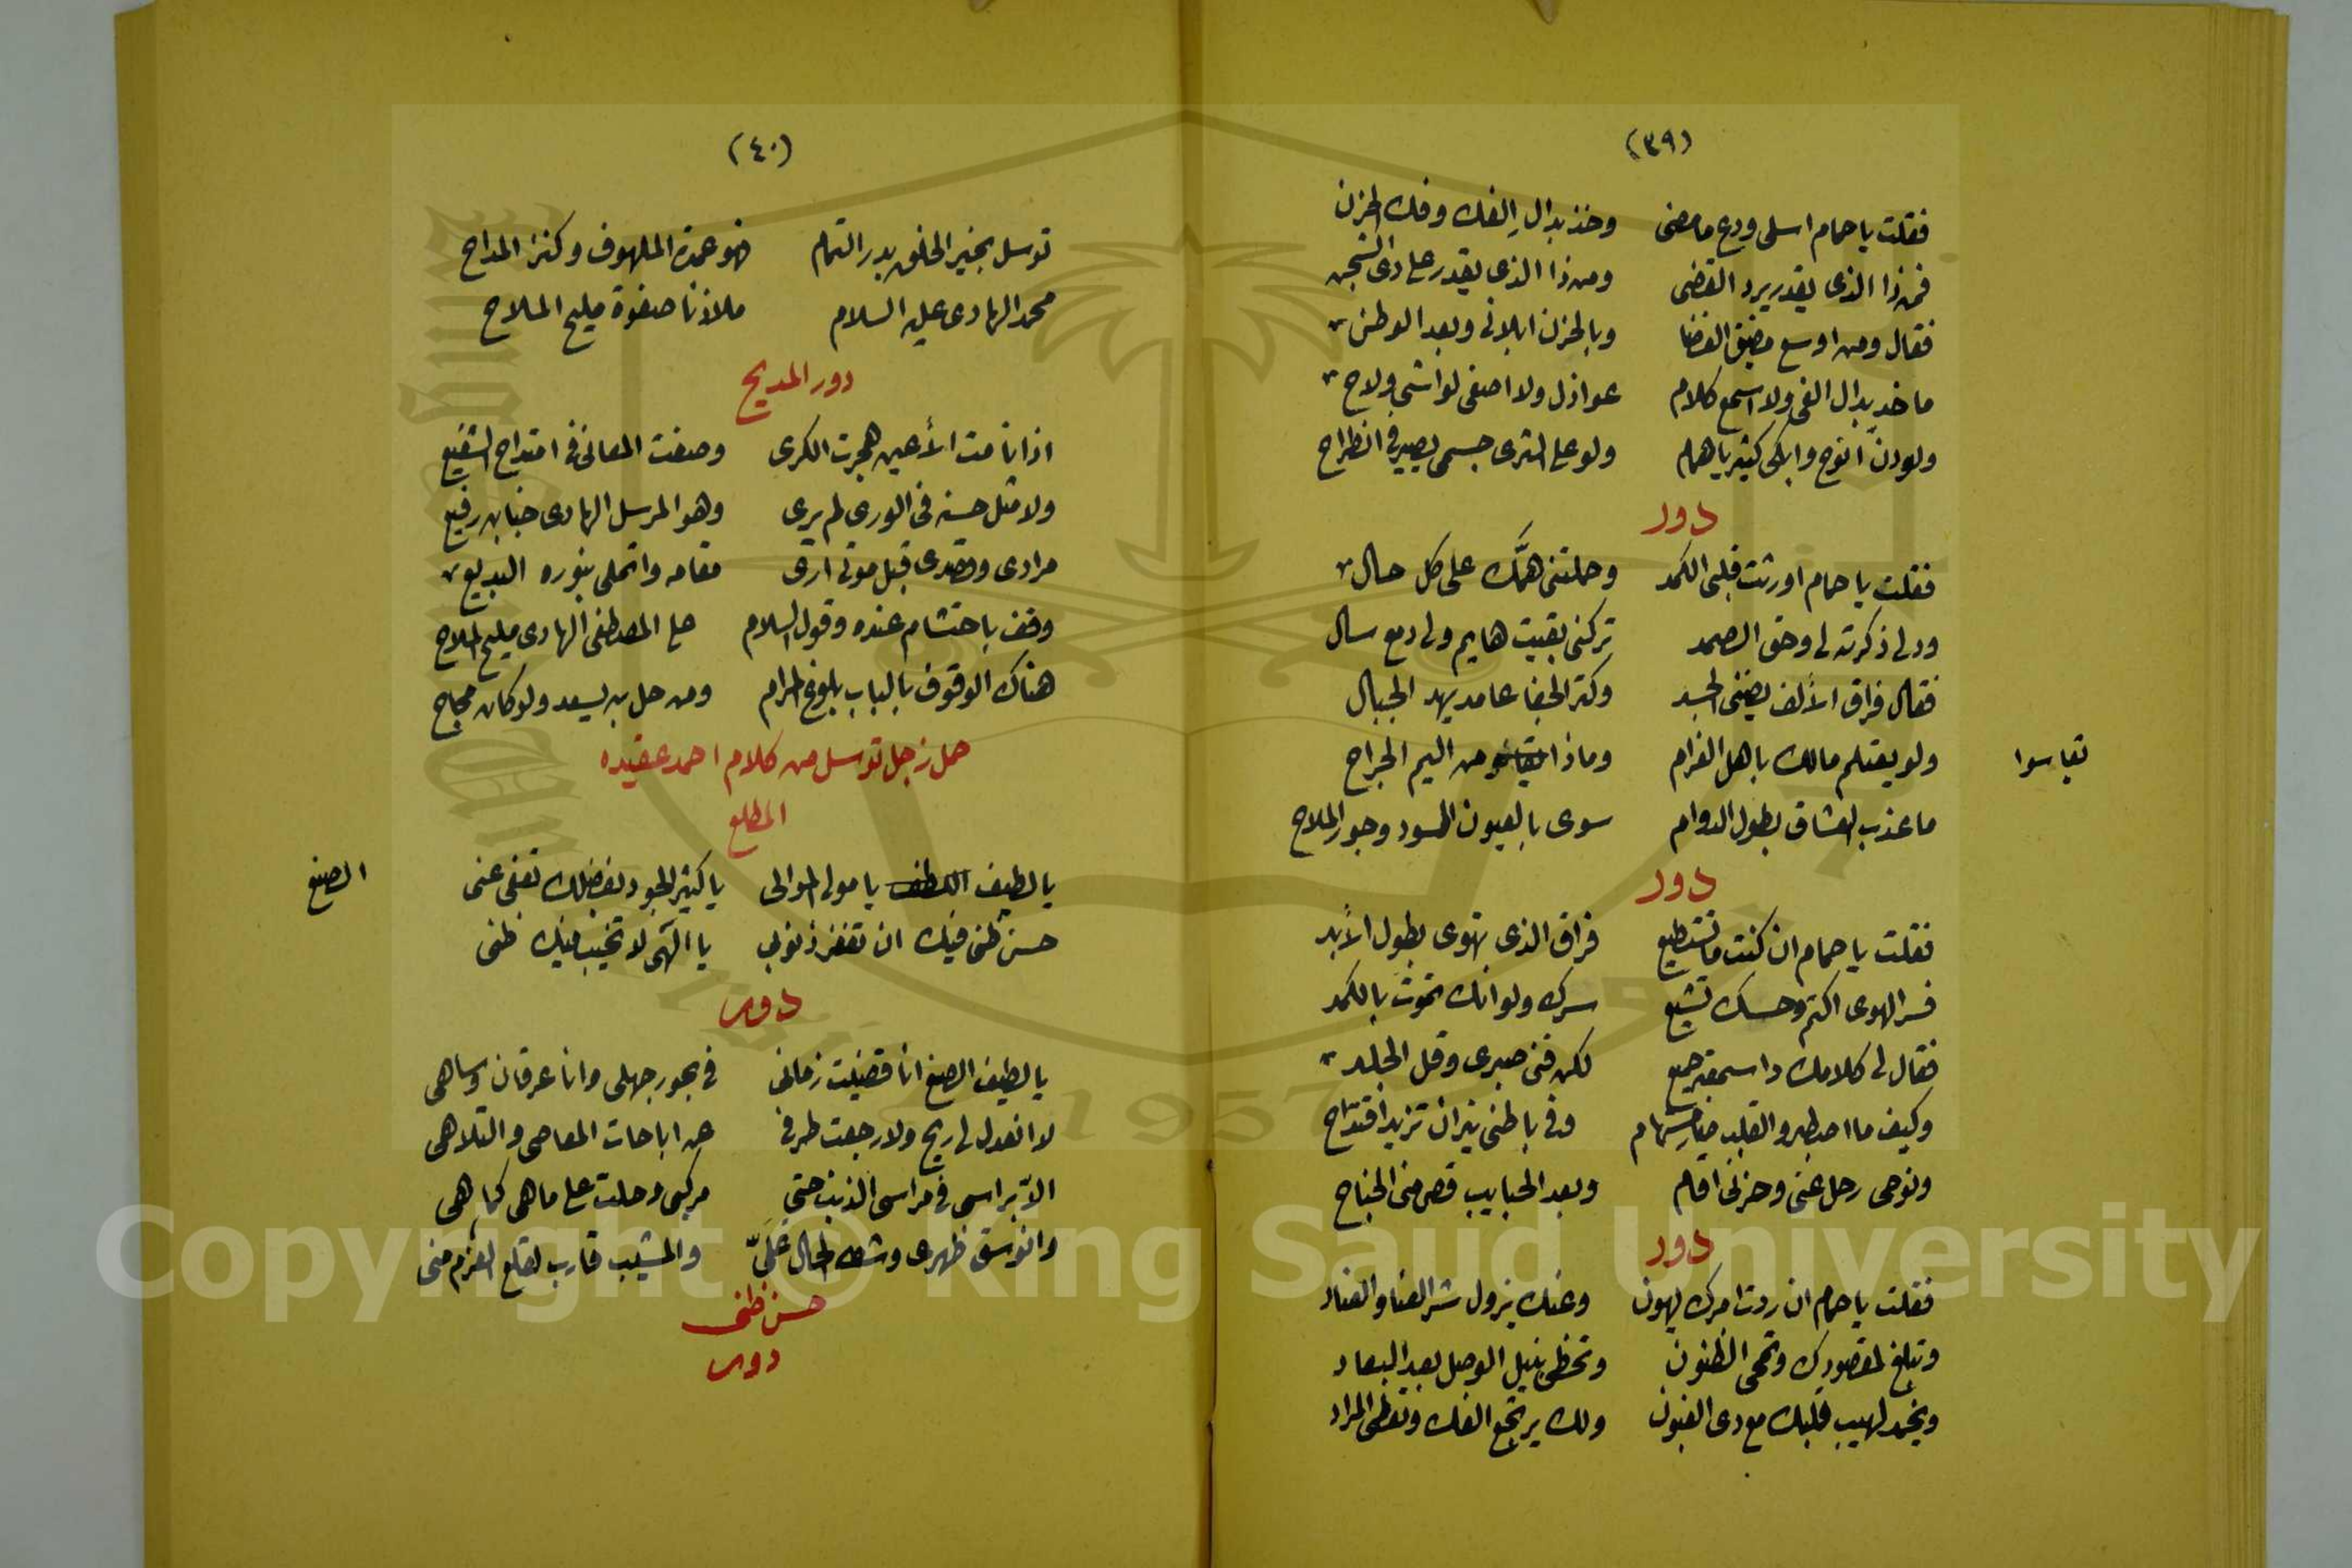 (٣٩)
فقلت يا حمام اسلى ودع ما مضى وخذ بدال إلفك وفك الحزن
فمن ذا الذى يقدر يرد القضى ومن ذا الذى يقدر على دى الشجن
فقال ومن اوسع مضيق الفضا وبالحزن ابلانى وبعد الوطن
ما خد بدال الفى ولا اسمع كلام عواذل ولا اصغى لواشى ولاح
ولو دنّ انوح وابكى كثير يا همام ولو على الثرى جسمى يصير فى انطراح
دور
فقلت يا حمام اورثت قلبى الكمد وحملتنى همَّك على كل حال
ودلى ذكرته لى وحق الصمد تركنى بقيت هايم ولى دمع سال
فقال فراق الألف يضنى الجسد وكتر الجفا عامد يهد الجبال
ولو يعتلم مالك باهل الغرام وماذا من اليم الجراح
تقاسوا
ما عذب العشاق بطول الدوام سوى بالعيون السود وجور الملاح
دور
فقلت يا حمام ان كنت ما تستطيع فراق الذى تهوى بطول الأبد
فسر الهوى اكتم وحسك تشيع سرك ولو انك تموت بالكمد
فقال لى كلامك دا سمعته جميع لكن فنى صبرى وقل الجلد
وكيف ما اصطبر والقلب سهام وفى باطنى نيران تزيد اقتداح
ونومى رحل عنى وحزنى اقام وبعد الحبايب قص منى الجناح
دور
فقلت يا حمام ان ردت امرك يهون وعنك يزول شر العنا والعناد
وتبلغ لمقصودك وتمحى الظنون وتحظى بنيل الوصل بعد البعاد
ويخمد لهيب قلبك مع دى الغبون ولك يرتجع الفك وتعطى المراد
(٤٠)
توسل بخير الخلق بدر التمام فهو عمدة الملهوف وكنز المداح
محمد الهادى عليه السلام ملاذنا صفوة مليح الملاح
دور المديح
اذا نامت الأعين هجرت الكرى وصغت المعانى فى امتداح الشفيع
ولا مثل حسنه فى الورى لم يرى وهو المرسل الهادى جنابه رفيع
مرادى وقصدى قبل موتى ارى مقامه واتملى بنوره البديع
وقف باحتشام عنده وقول السلام على المصطفى الهادى مليح الملاح
هناك الوقوف بالباب بلوغ المرام ومن حل به يسعد ولو كان مجاح
حمل زجل توسل من كلام احمد عقيده
المطلع
يا لطيف اللطف يا مولى الموالى يا كثير الجود بفضلك تعفى عنى
الصنع
حسن ظنى فيك ان تغفر ذنوبى يا الهى لا تخيب فيك ظنى
دور
يا لطيف الصنع انا قضيت زمانى فى بحور جهلى وانا غرقان وساهى
لا انعدل لى ريح ولا رجعت طرفى عن اباحات المعاصى والتلاهى
الا براسى فى مراسى الذنب حتى مركبى وحلت على ماهى كما هى
وانوسق ظهرى وشط الحال علىّ والمشيب قارب لقلع العزم منى
حسن ظنى
دور